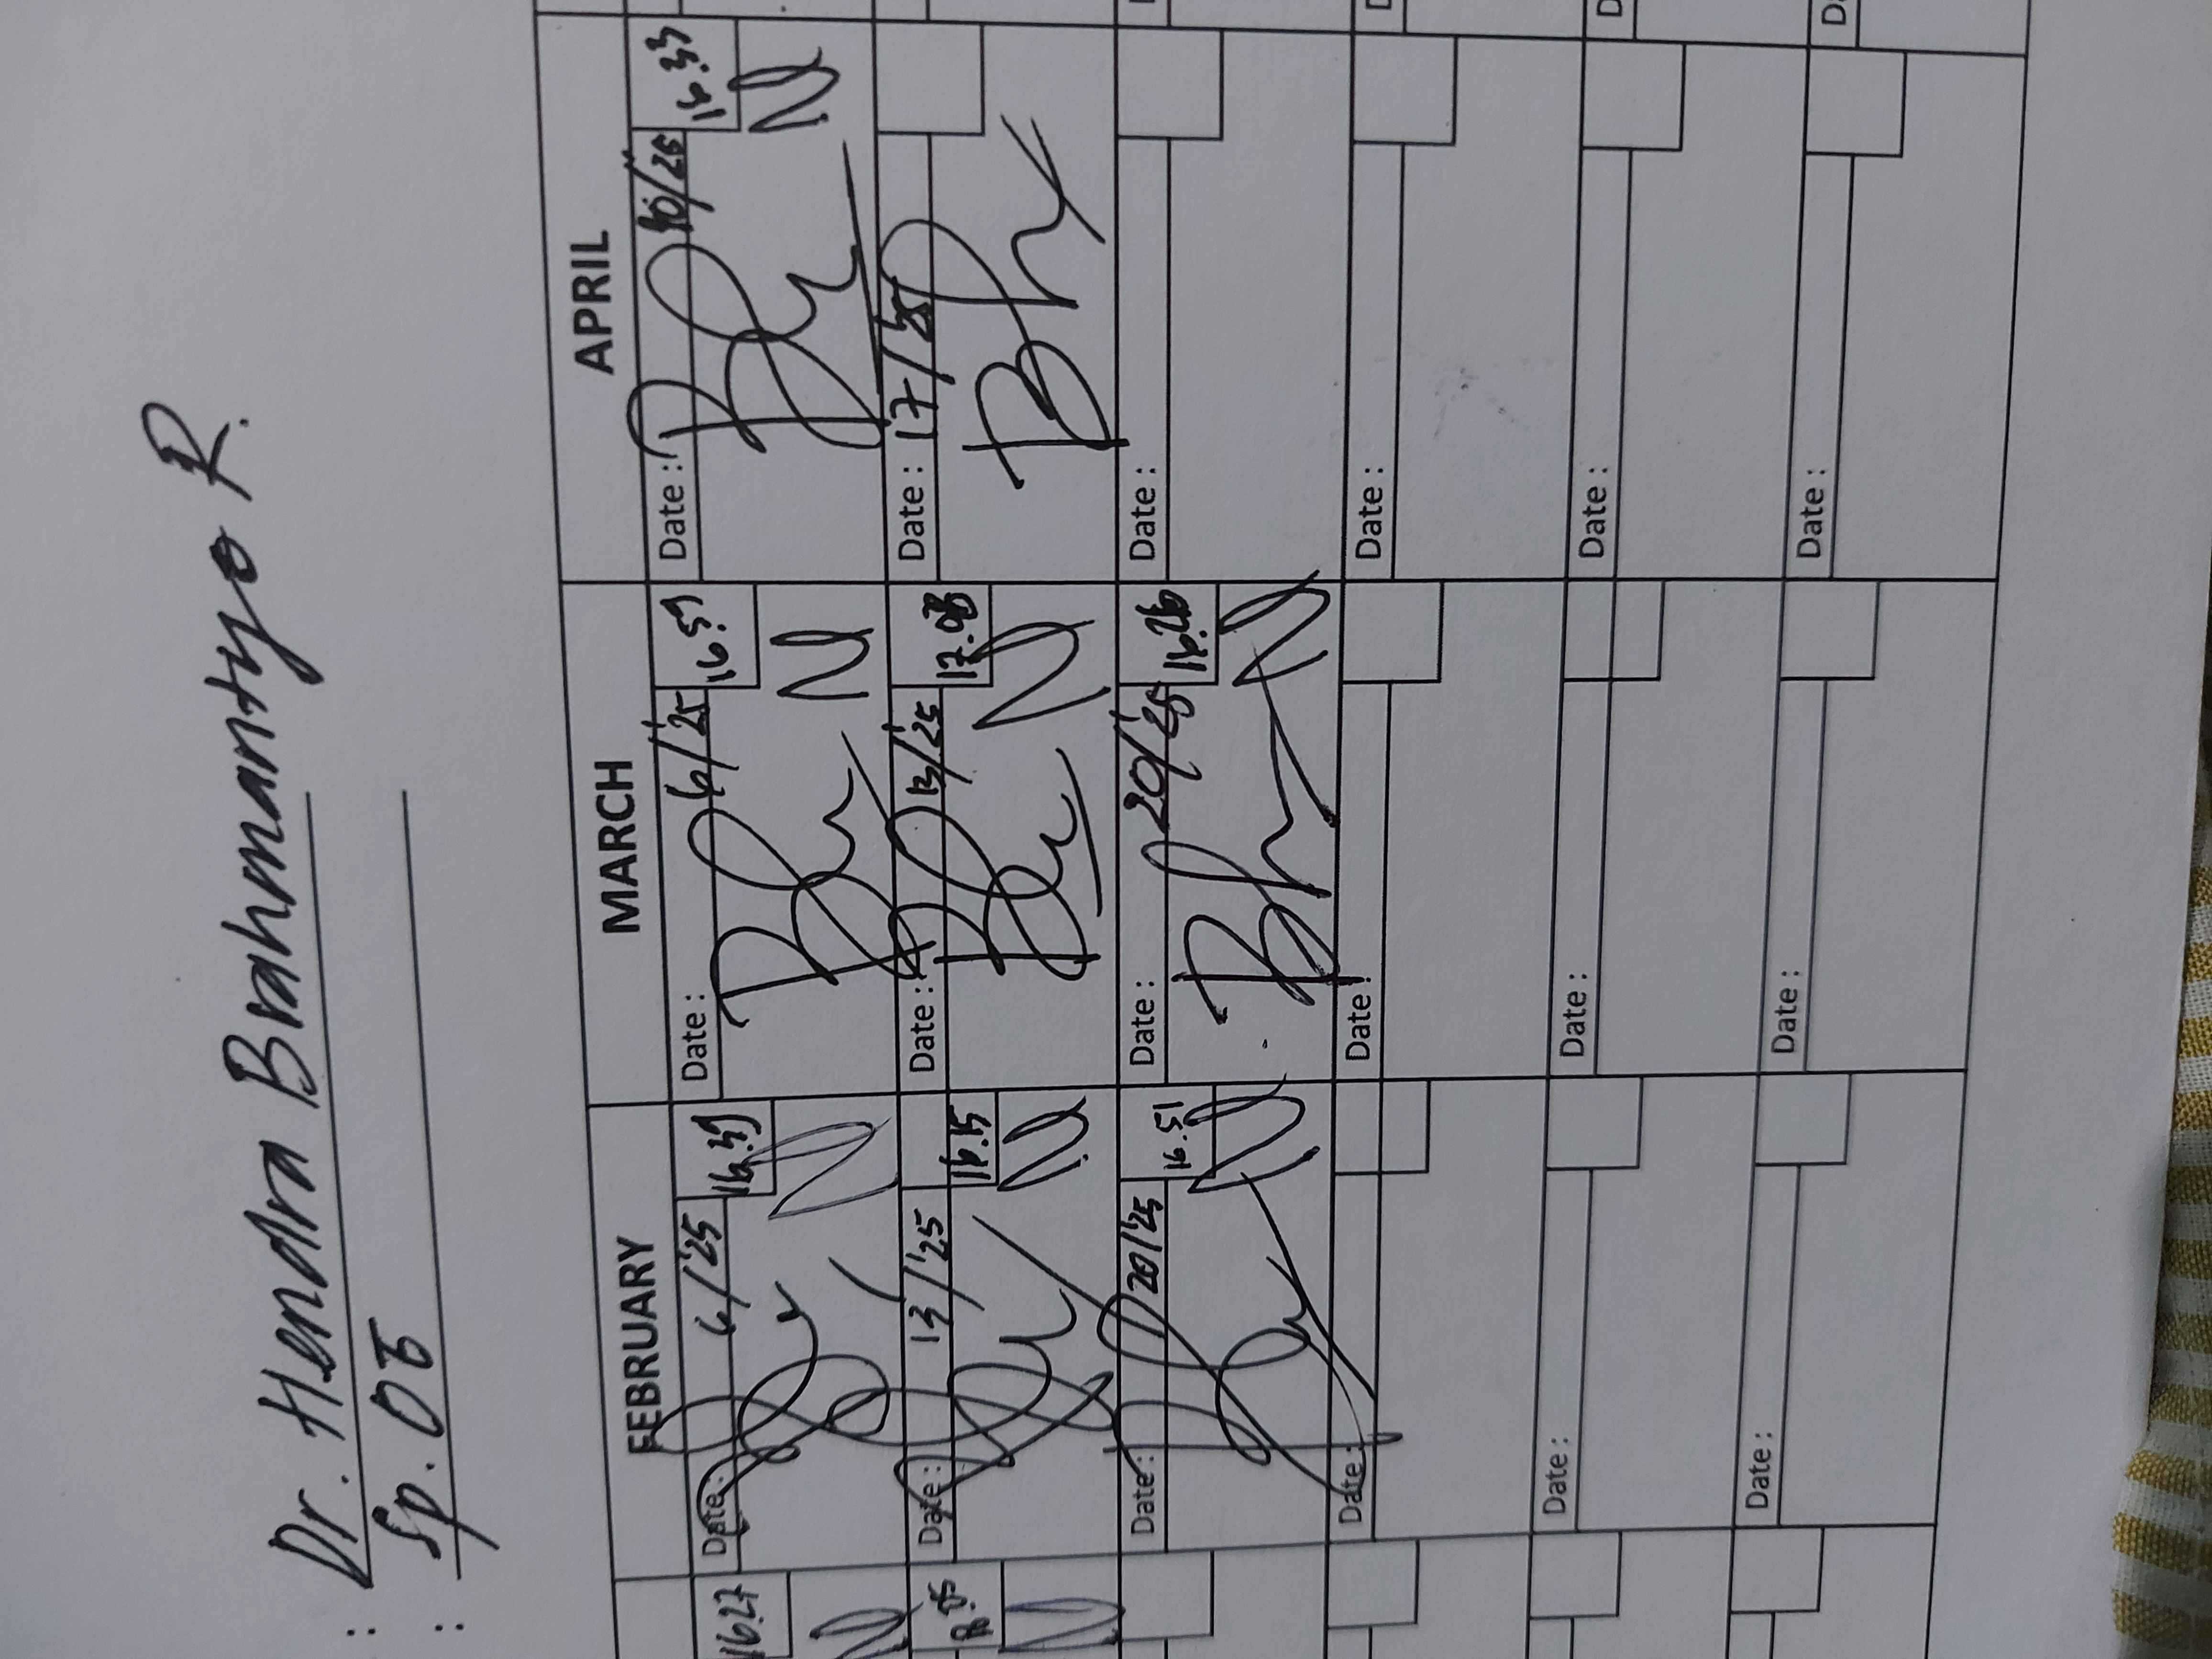 : Dr. Hendra Brahmantyo R.
: Sp. OT
FEBRUARY MARCH APRIL
16.27 Date: 6/'25 16.39 Date: 6/'25 16.59 Date: 10/25 16.33
Date: 13/'25 16.15 Date: 13/'25 17.03 Date: 17/'25
Date: 20/'25 16.51 Date: 20/'25 16.26 Date:
Date: Date: Date:
Date: Date: Date:
Date: Date: Date: